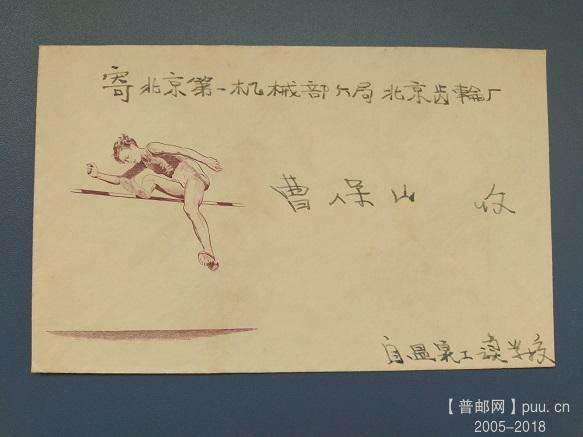 寄北京第一机械部六局北京齿輪厂
曹保山 收
自温泉工读学校
【普邮网】puu.cn
2005-2018